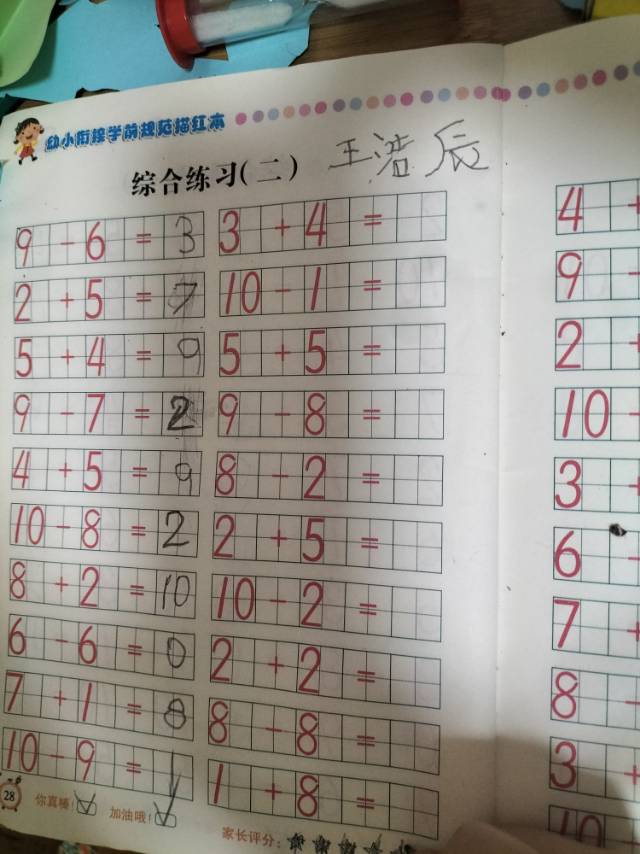 幼小衔接学前规范描红本
综合练习(二) 王浩辰
9 - 6 = 3 3 + 4 = 4 +
2 + 5 = 7 10 - 1 = 9 -
5 + 4 = 9 5 + 5 = 2 +
9 - 7 = 2 9 - 8 = 10 -
4 + 5 = 9 8 - 2 = 3 +
10 - 8 = 2 2 + 5 = 6 -
8 + 2 = 10 10 - 2 = 7 +
6 - 6 = 0 2 + 2 = 8 -
7 + 1 = 8 8 - 8 = 3 +
10 - 9 = 1 1 + 8 = 10
28 你真棒! 加油哦! 家长评分: